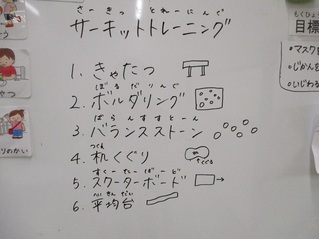 さーきっと とれーにんぐ
サーキットトレーニング
1. きゃたつ
ぼるだりんぐ
2. ボルダリング
ばらんすすとーん
3. バランスストーン
つくえ
4. 机くぐり
くぐる
すくーたーぼーど
5. スクーターボード
へいきんだい
6. 平均台
もくひょう
目標
・マスク
・じかん
・いじわる
やつ
りのかい